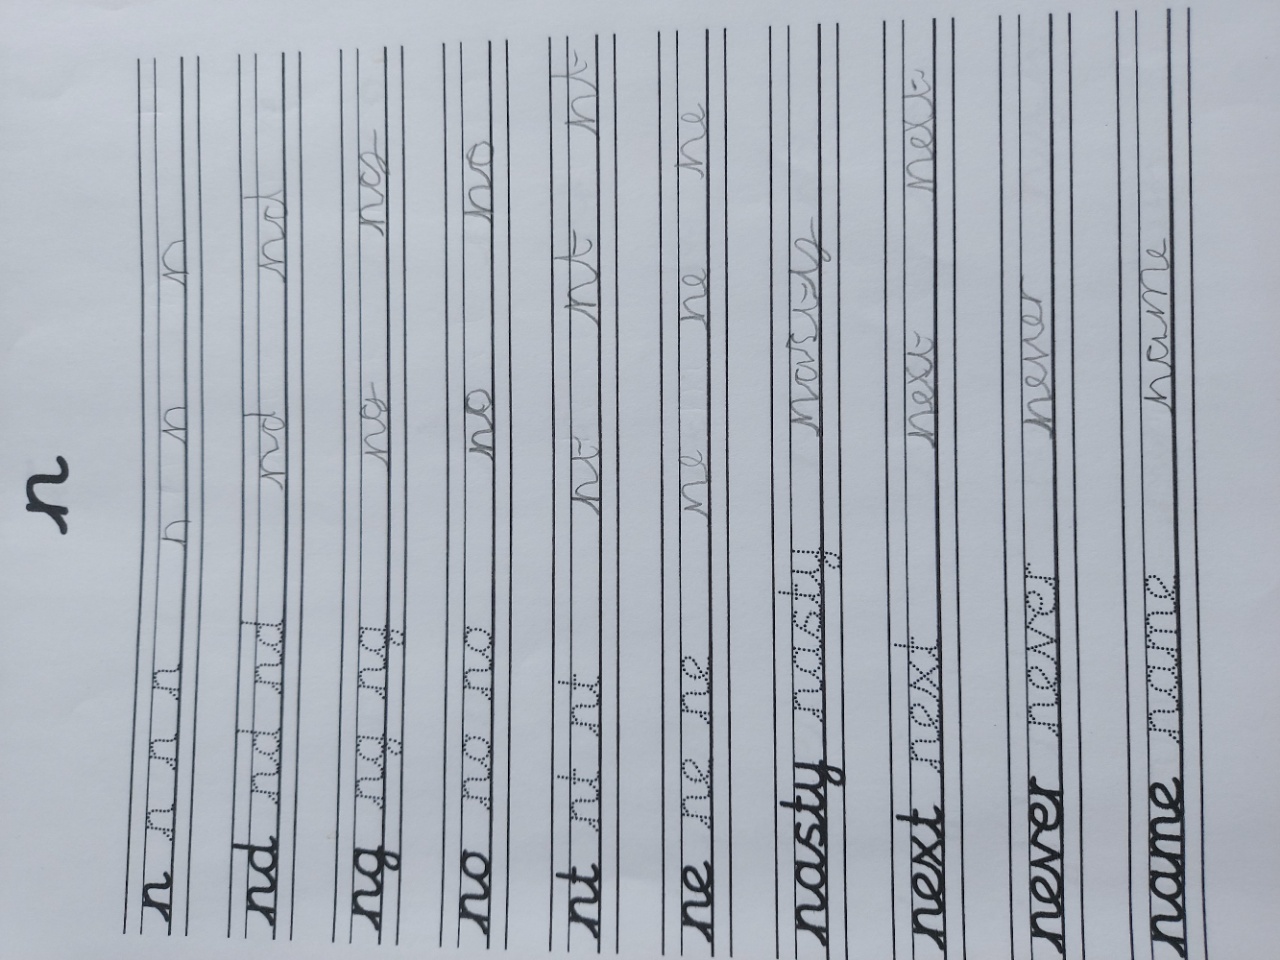 n
n n n n n n n
nd nd nd nd nd
ng ng ng ng ng
no no no no no
nt nt nt nt nt nt
ne ne ne ne ne ne
nasty nasty nasty
next next next next
never never never
name name name